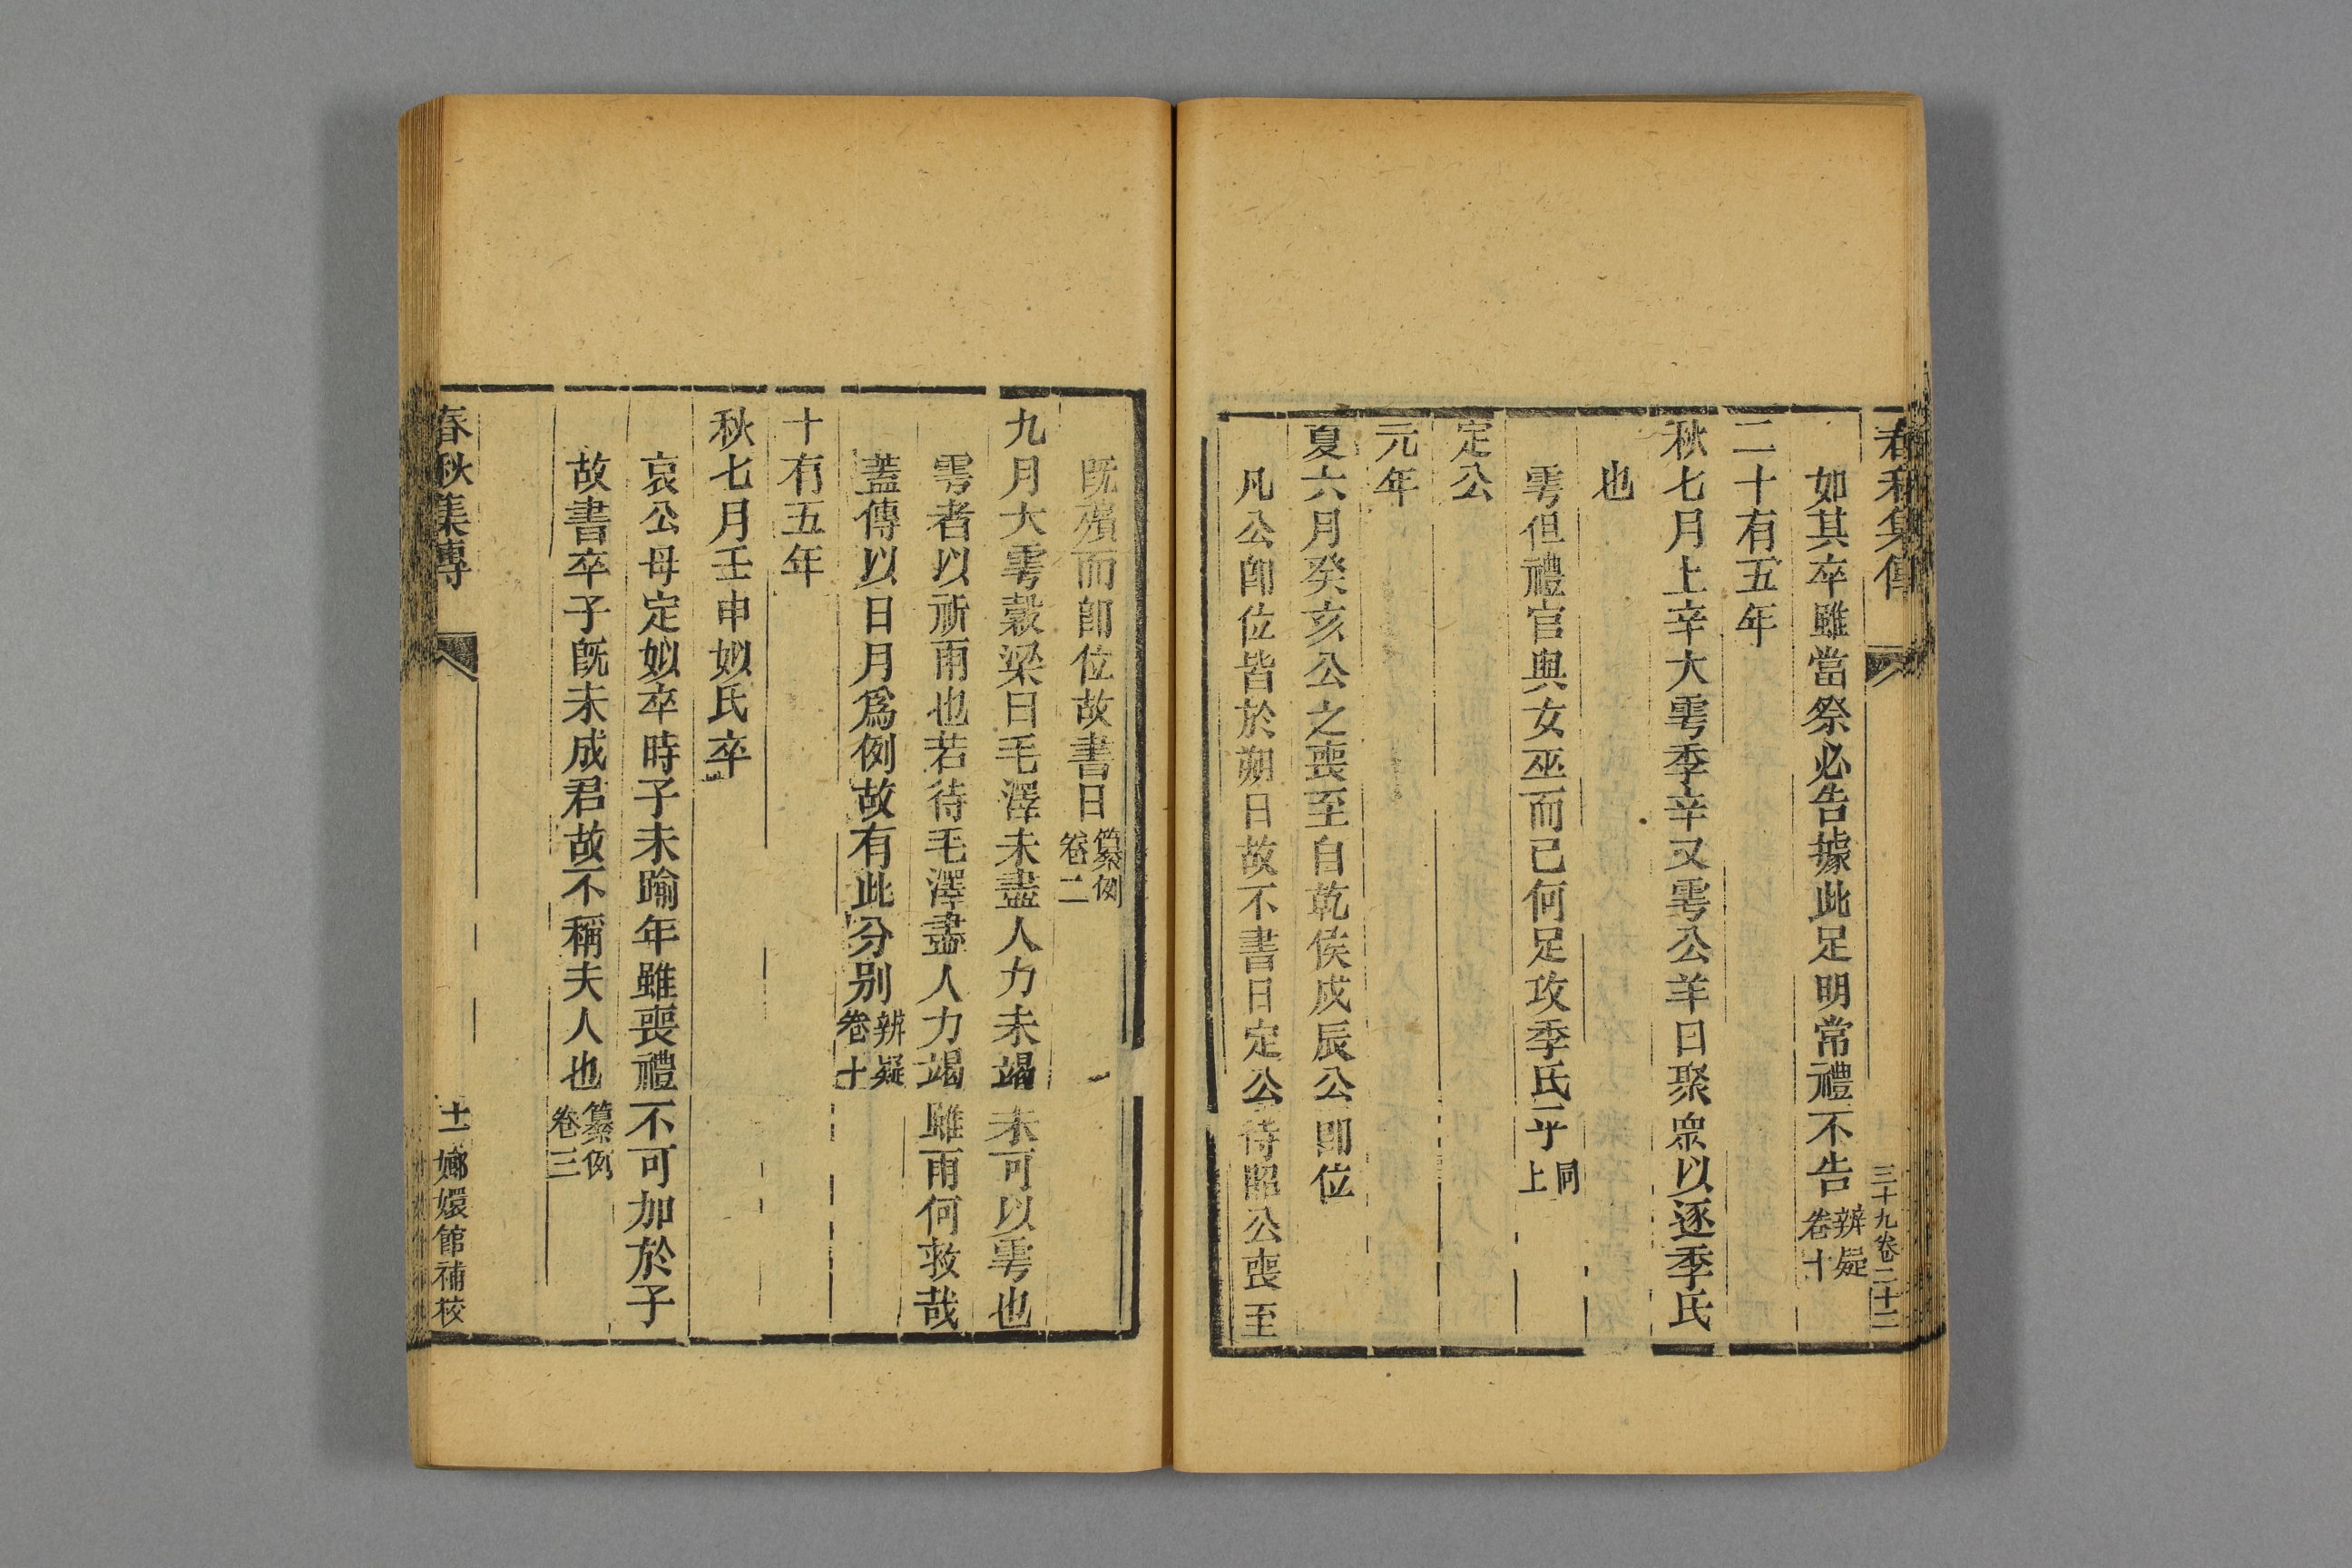 春秋集傳
三十九卷二十二
如其卒雖當祭必告據此足明常禮不告辨疑卷十
二十有五年
秋七月上辛大雩季辛又雩公羊曰聚眾以逐季氏
也
雩但禮官與女巫而已何足攻季氏乎同上
定公
元年
夏六月癸亥公之喪至自乾侯戊辰公卽位
凡公卽位皆於朔日故不書日定公待昭公喪至
旣殯而卽位故書日纂例卷二
九月大雩穀梁曰毛澤未盡人力未竭未可以雩也
雩者以祈雨也若待毛澤盡人力竭雖雨何救哉
蓋傳以日月爲例故有此分別辨疑卷十
十有五年
秋七月壬申姒氏卒
哀公母定姒卒時子未踰年雖喪禮不可加於子
故書卒子旣未成君故不稱夫人也纂例卷三
春秋集傳
十一
嫏嬛館補校